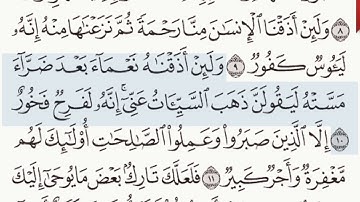 وَلَئِنْ أَذَقْنَا ٱلْإِنسَـٰنَ مِنَّا رَحْمَةً ثُمَّ نَزَعْنَـٰهَا مِنْهُ إِنَّهُۥ
لَيَـُٔوسٌ كَفُورٌ ٩ وَلَئِنْ أَذَقْنَـٰهُ نَعْمَآءَ بَعْدَ ضَرَّآءَ
مَسَّتْهُ لَيَقُولَنَّ ذَهَبَ ٱلسَّيِّـَٔاتُ عَنِّىٓ ۚ إِنَّهُۥ لَفَرِحٌ فَخُورٌ
١٠ إِلَّا ٱلَّذِينَ صَبَرُوا۟ وَعَمِلُوا۟ ٱلصَّـٰلِحَـٰتِ أُو۟لَـٰٓئِكَ لَهُم
مَّغْفِرَةٌ وَأَجْرٌ كَبِيرٌ ١١ فَلَعَلَّكَ تَارِكٌۢ بَعْضَ مَا يُوحَىٰٓ إِلَيْكَ